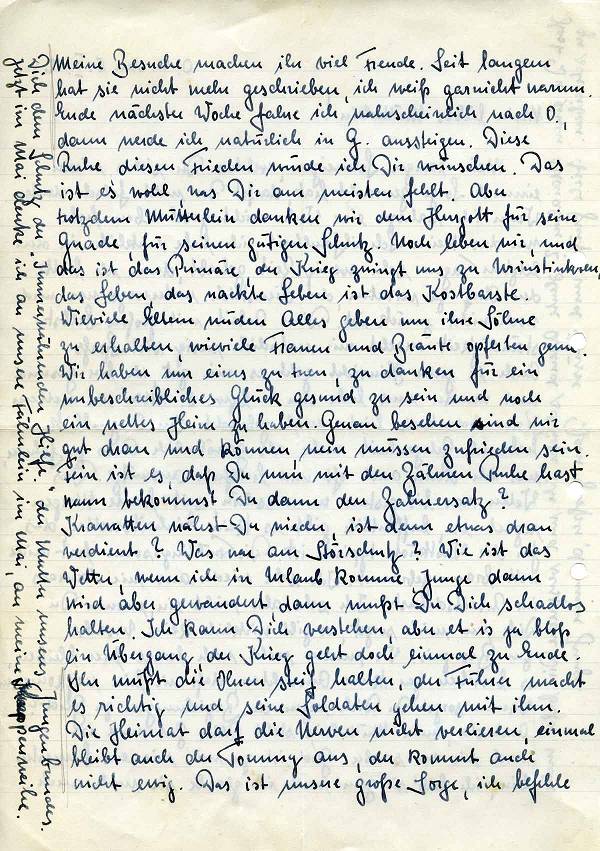 Meine Besuche machen ihr viel Freude. Seit langem
hat sie nicht mehr geschrieben, ich weiß garnicht warum.
Ende nächster Woche fahre ich wahrscheinlich nach O.,
dann werde ich natürlich in G. aussteigen. Diese
Ruhe diesen Frieden würde ich Dir wünschen. Das
ist es wohl was Dir am meisten fehlt. Aber
trotzdem Mütterlein danken wir dem Herrgott für seine
Gnade, für seinen gütigen Schutz. Noch leben wir, und
das ist das Primäre, der Krieg zwingt uns zu Urinstinkten,
das Leben, das nackte Leben ist das Kostbarste.
Wieviele Eltern würden Alles geben um ihre Söhne
zu erhalten, wieviele Frauen und Bräute opferten gern.
Wir haben nur eines zu tuen, zu danken für ein
unbeschreibliches Glück gesund zu sein und noch
ein nettes Heim zu haben. Genau besehen sind wir
gut dran und können, nein müssen zufrieden sein.
Fein ist es, daß Du nun mit den Zähnen Ruhe hast
wann bekommst Du dann den Zahnersatz?
Krawatten nähst Du wieder, ist denn etwas dran
verdient? Was war am Störschutz? Wie ist das
Wetter, wenn ich in Urlaub komme, Junge dann
wird aber gewandert dann mußt Du Dich schadlos
halten. Ich kann Dich verstehen, aber et is ja bloß
ein Übergang, der Krieg geht doch einmal zu Ende.
Ihr müßt die Ohren steif halten, der Führer macht
es richtig und seine Soldaten gehen mit ihm.
Die Heimat darf die Nerven nicht verlieren, einmal
bleibt auch der Tommy aus, der kommt auch
nicht ewig. Das ist unsere große Sorge, ich befehle
Dich dem Schutz der "Immerwährenden Hilfe", der Mutter unseres Jungenbundes.
Jetzt im Mai denke ich an unsere Fähnlein im Mai, an meine Knappenweihe.